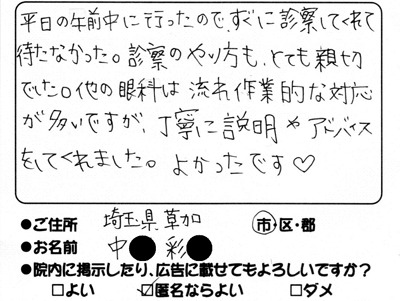 平日の午前中に行ったので、すぐに診察してくれて
待たなかった。診察のやり方も、とても親切
でした。他の眼科は流れ作業的な対応
が多いですが、丁寧に説明やアドバイス
をしてくれました。よかったです♡
●ご住所 埼玉県草加 市・区・郡
●お名前 中● 彩●
●院内に掲示したり、広告に載せてもよろしいですか？
□よい ☑匿名ならよい □ダメ